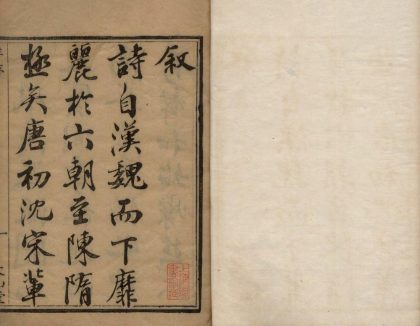 叙
詩自漢魏而下靡
麗於六朝至陳隋
極矣唐初沈宋輩